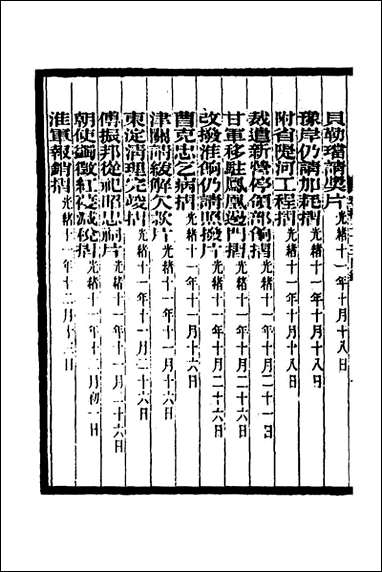 貝勒瑺請獎片光緖十一年十月十八日
豫岸仍請加耗摺光緖十一年十月十八日
附省隄河工程摺光緖十一年十月十八日
裁遣新營停領部餉摺光緖十一年十月二十一日
甘軍移駐鳳凰邊門摺光緖十一年十月二十六日
改撥淮餉仍請照撥片光緖十一年十月二十六日
曹克忠乞病摺光緖十一年十一月十六日
津關請緩解欠款片光緖十一年十一月十六日
東淀淸理完竣摺光緖十一年十一月二十六日
傅振邦從祀昭忠祠片光緖十一年十一月二十六日
朝使蠲徵紅薓減稅摺光緖十一年十二月初一日
淮軍報銷摺光緖十一年十二月十三日